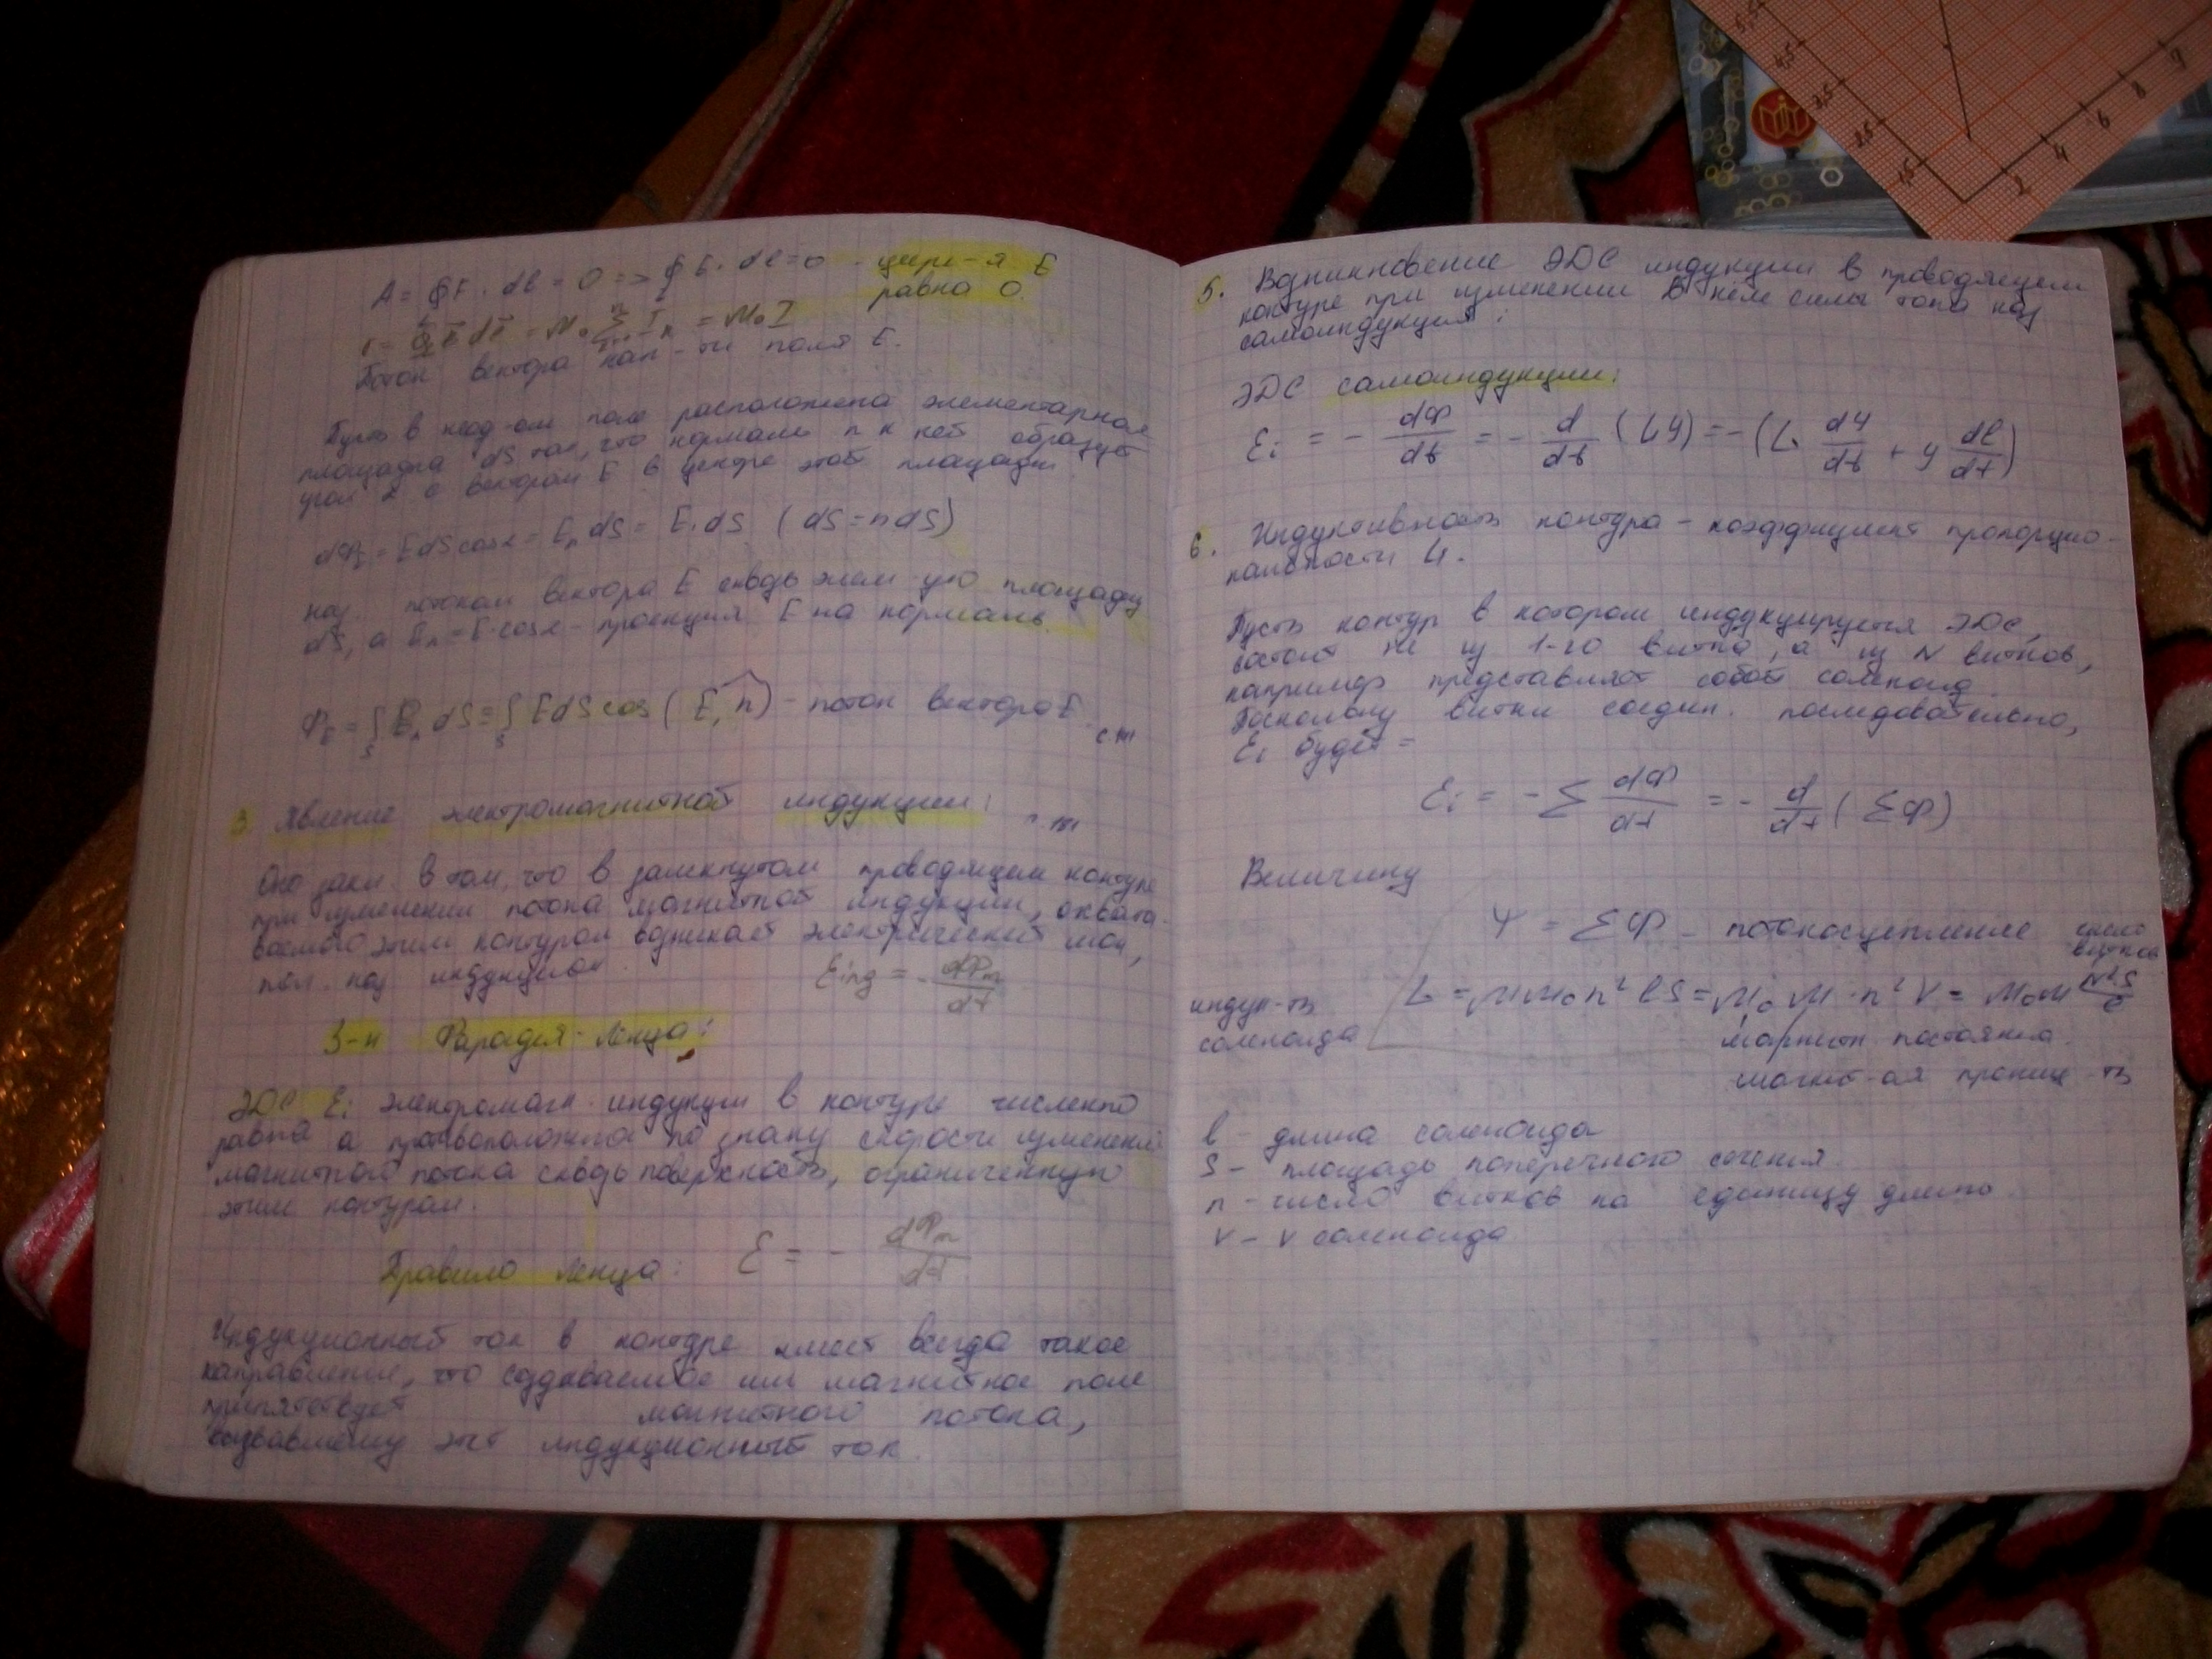 A = ∮ F · dl = 0 => ∮ E · dl = 0 - цирк-я E
равна 0.
= μ₀ Σ Iₙ = μ₀ I
Поток вектора нап-ти поля E.
Пусть в неод-ом поле расположена элементарная
площадка dS так, что нормаль n к ней образует
угол α с вектором E в центре этой площадки
dΦ_E = E dS cosα = Eₙ dS = E · dS (dS = n dS)
наз. потоком вектора E сквозь элем-ую площадку
dS, а Eₙ = E · cosα - проекция E на нормаль.
Φ_E = ∫ Eₙ dS = ∫ E dS cos (E, n) - поток вектора E
3. Явление электромагнитной индукции:
Оно закл. в том, что в замкнутом проводящем контуре
при изменении потока магнитной индукции, охваты-
ваемого этим контуром возникает электрический ток,
наз индукцион
Eинд = - dΦm/dt
З-н Фарадея-Ленца:
ЭДС Ei электромагн. индукции в контуре численно
равна а противоположна по знаку скорости изменения
магнитного потока сквозь поверхность, ограниченную
этим контуром.
Правило Ленца: Ɛ = - dΦm/dt
Индукционный ток в контуре имеет всегда такое
направление, что создаваемое им магнитное поле
препятствует магнитного потока,
вызвавшему этот индукционный ток.
5. Возникновение ЭДС индукции в проводящем
контуре при изменении в нем силы тока наз
самоиндукция:
ЭДС самоиндукции:
Ɛi = - dΦ/dt = - d/dt (LY) = - (L dY/dt + Y dl/dt)
6. Индуктивность контура - коэффициент пропорцио-
нальности L.
Пусть контур в котором индуцируется ЭДС,
состоит не из 1-го витка, а из N витков,
например представляет собой соленоид.
Поскольку витки соедин. последовательно,
Ɛi будет =
Ɛi = - Σ dΦ/dt = - d/dt (ΣΦ)
Величину
Ψ = ΣΦ - потокосцепление
число
витков
индук-ть
соленоида
L = μμ₀n²lS = μ₀μ·n²V = μ₀μ N²S/l
магнитн. постоянная
магнит-ая прониц-ть
l - длина соленоида
S - площадь поперечного сечения.
n - число витков на единицу длины
V - V соленоида
4,5
3,5
2,5
1,5
2
4
6
8
9